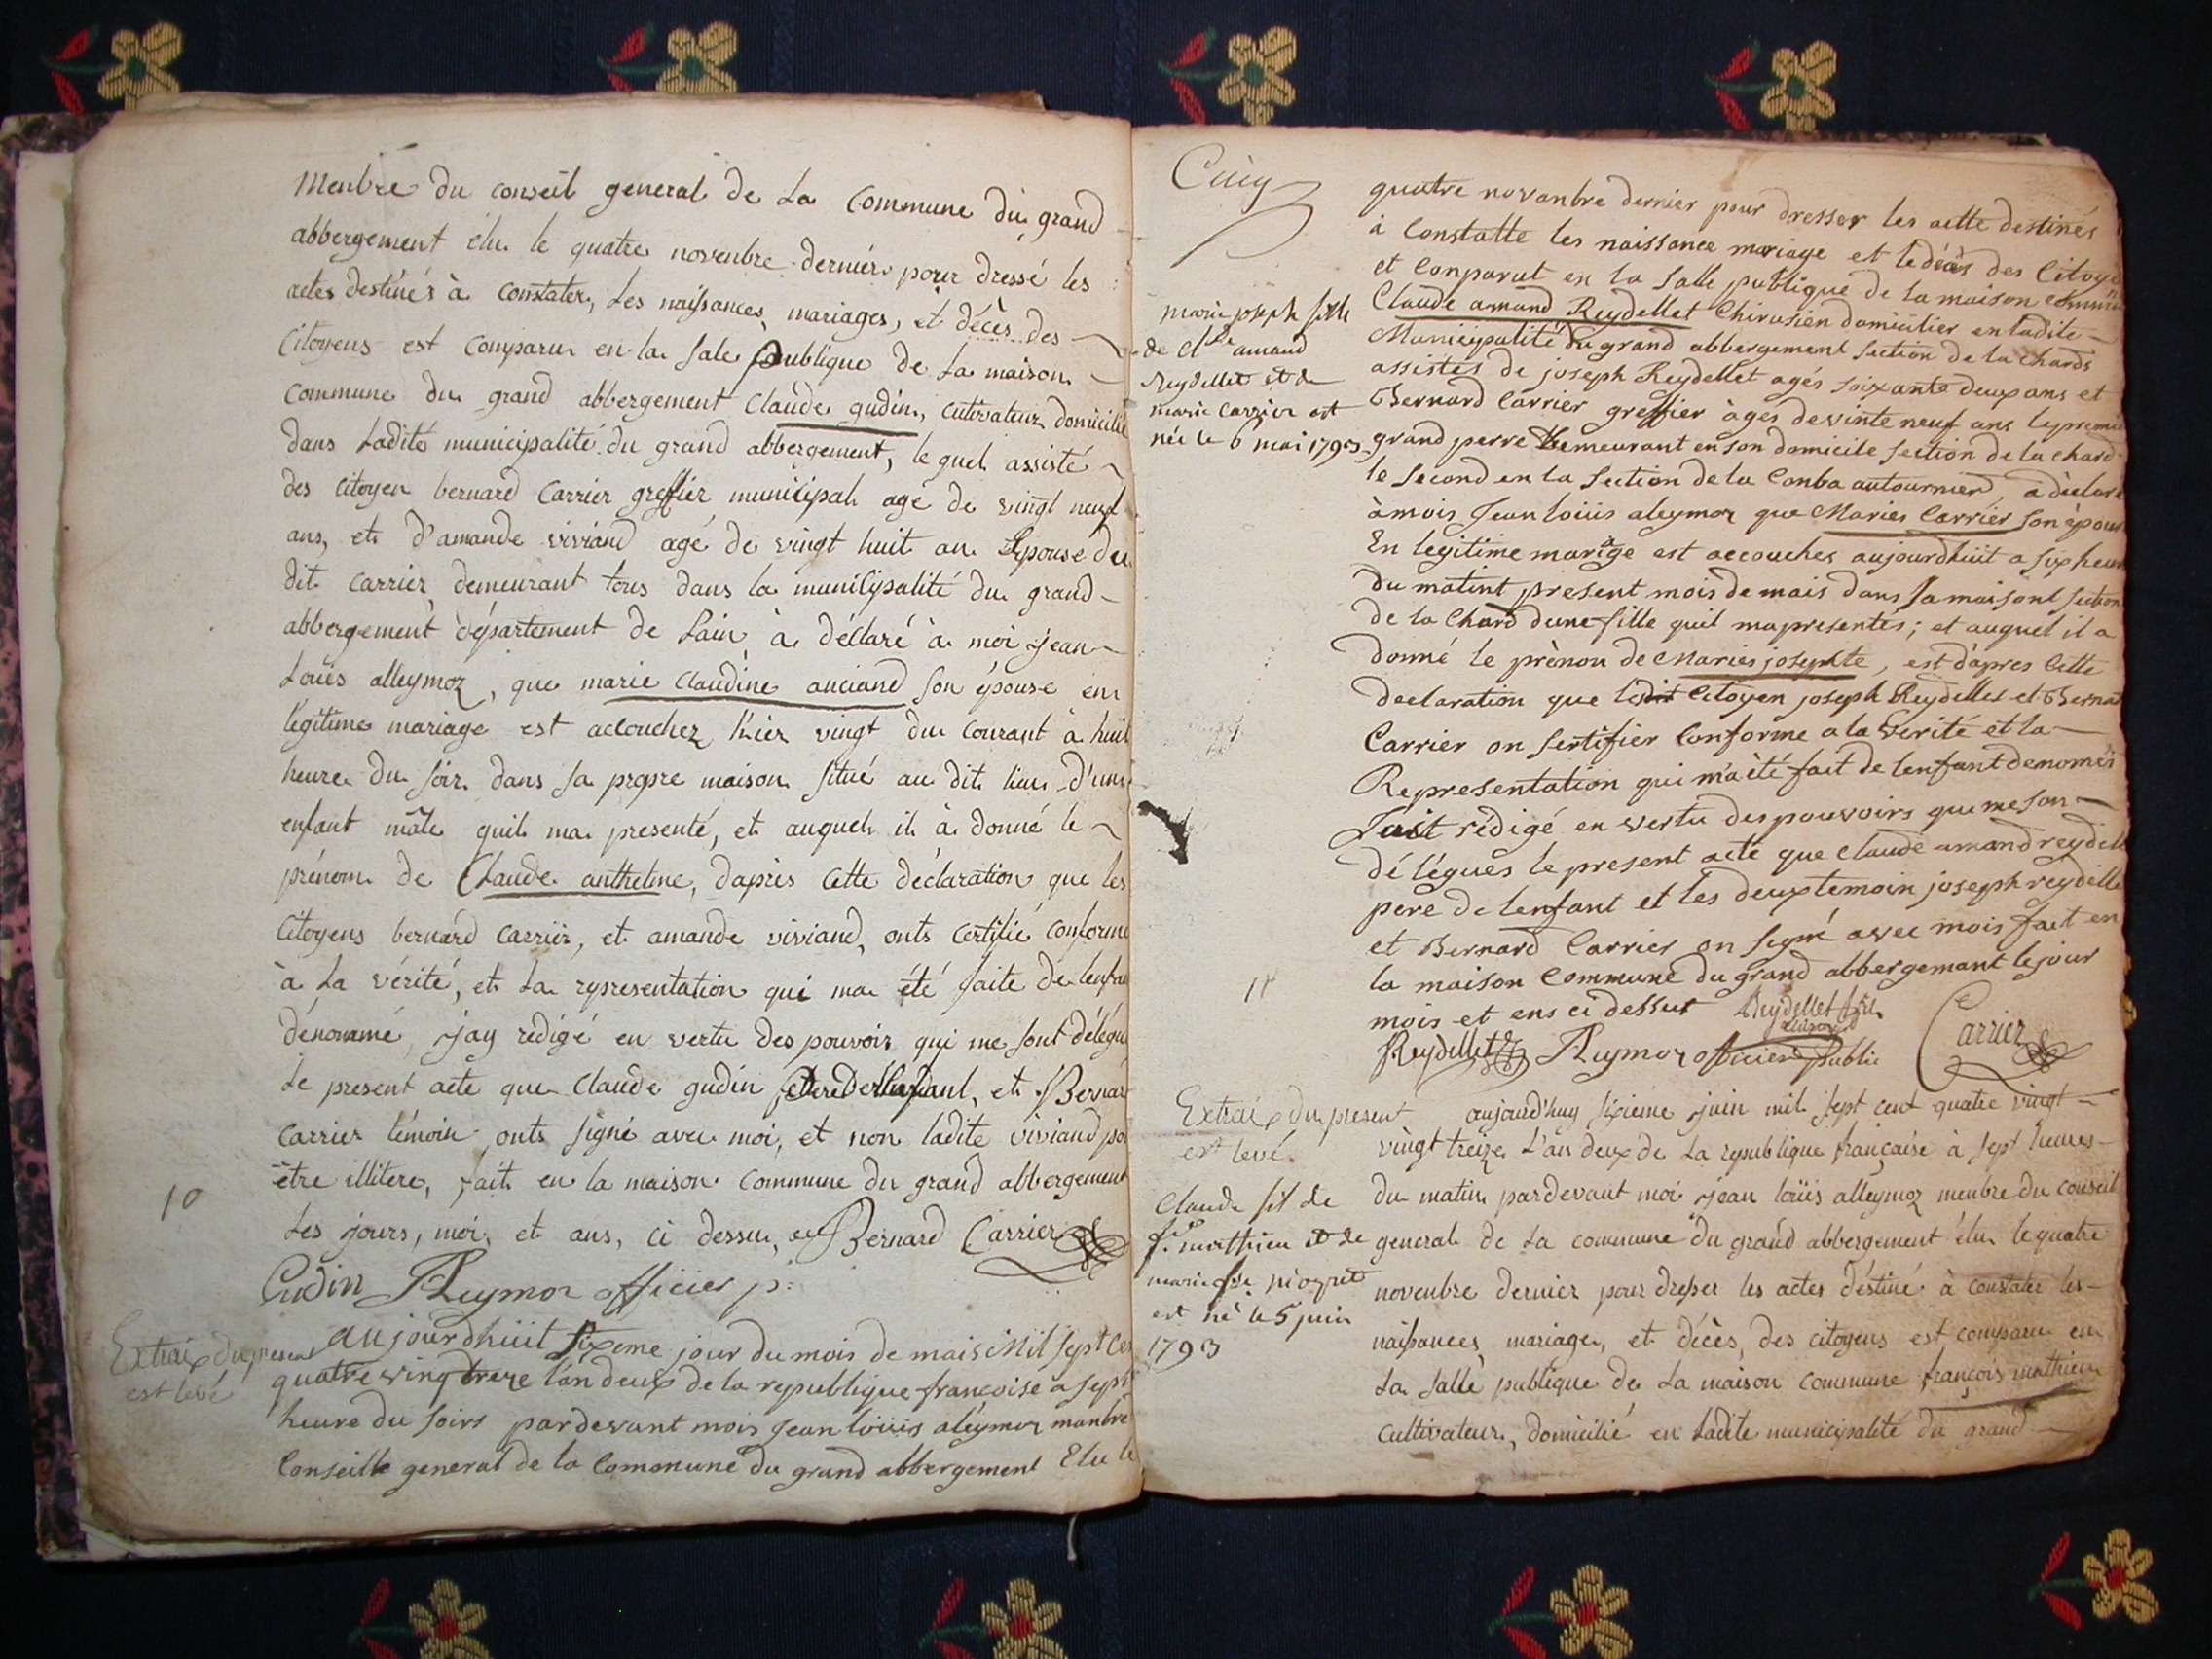 Menbre du conseil general de La Commune du grand
abbergement élu le quatre novenbre dernier pour dressé les
actes destinés à constater, Les naissances, mariages, et décès des
Citoyens est comparu en la sale publique de La maison
Commune du grand abbergement Claude gudin, cutivateur domicilié
dans Ladite municipalité du grand abbergement, lequel assisté
des citoyen bernard Carrier greffier municipal agé de vingt neuf
ans, et d'amande viviand agé de vingt huit an Epouse du
dit Carrier demeurant tous dans la municipalité du grand
abbergement département de Lain à déclaré à moi jean
Loüis alleymoz, que marie Claudine anciand son épouse en
legitime mariage est accouchez hier vingt du Courant à huit
heure du soir dans sa propre maison situé au dit lieu d'un
enfant mâle quil ma presenté, et auquel il à donné le
prénom de Claude anthelme, dapres Cette déclaration que les
Citoyens bernard Carrier, et amande viviand, onts certifié conforme
à La vérité, et La representation qui ma été faite de lenfan
dénommé, jay redigé en vertu des pouvoir qui me sont délégu
Le present acte que Claude gudin pere de l'enfant, et Bernar
Carrier témoin onts signé avec moi, et non ladite viviand po
être illitere, fait en la maison Commune du grand abbergement
10
Les jours, moi, et ans, ci dessu Bernard Carrier
Gudin Aleymoz officier p:
Extrai du presen
est levé
aujourdhuit sixeme jour du mois de mais Mil sept Cen
quatre ving treze l'an deux de la republique francoise a sept
heure du soirs pardevant mois Jean loiiis aleymoz manbre
Conseille general de la Commune du grand abbergement Elu le
Cinq
quatre novanbre dernier pour dresser les actte destinés
à Constatte les naissance mariage et le décès des Citoye
et Conparut en la Salle publique de la maison commune
Claude amand Reydellet Chirusien domicilier en ladite
Municipalité du grand abbergement Section de la chard
assistés de joseph Reydellet agés soixante deux ans et
Bernard Carrier greffier àges de vinte neuf ans le premie
grand perre demeurant en son domicile section de la chard
le Second en la Section de la Conba autournier, a dèclaré
àmois Jean loiiis aleymoz que Maries Carrier son èpous
En legitime marige est accouches aujourdhuit a six heur
du matint present mois de mais dans sa maisont section
de la Chard dune fille quil mapresentés; et auquel il a
donné le prènon de Maries josephte, est dapres Cette
declaration que ledit Citoyen joseph Reydelles et Bernad
Carrier on sertifier Conforme a la verité et la
Representation qui ma été fait de lenfant denomés
Jait rédigé en vertu des pouvoirs que me son
délégués le present acte que Claude amand reydell
pere de lenfant et les deux temoin joseph reydelle
et Bernard Carrier on signé avec mois fait en
la maison Commune du grand abbergemant le jour
mois et ens ci dessut Reydellet
Reydellet Aleymoz officier public Carrier
marie joseph fille
de Cl^de amand
Reydellet et de
marie Carrier est
née le 6 mai 1793
Extrai du present
est levé.
aujourd'huy sixieme juin mil sept cent quatre vingt
vingt treize L'an deux de La republique française à sept heures
du matin pardevant moi jean loüis alleymoz menbre du conseil
general de La commune du grand abbergement élu le quatre
novenbre dernier pour dresser les actes déstiné à constater les
naissances, mariage, et décès, des citoyens est comparu en
La Salle publique de La maison Commune françois mathieu
Cultivateur, domicilié en Ladite municipalité du grand
Claude fil de
f^s mathieu et de
marie fse niogret
est né le 5 juin
1793